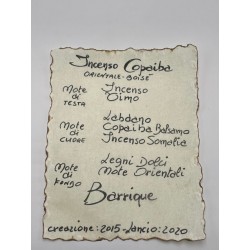 Incenso Copaiba
ORIENTALE-BOISÉ
Note di TESTA
Incenso
Olmo
Note di CUORE
Labdano
Copaiba Balsamo
Incenso Somalia
Note di FONDO
Legni Dolci
Note Orientali
Barrique
creazione:2015-Lancio:2020